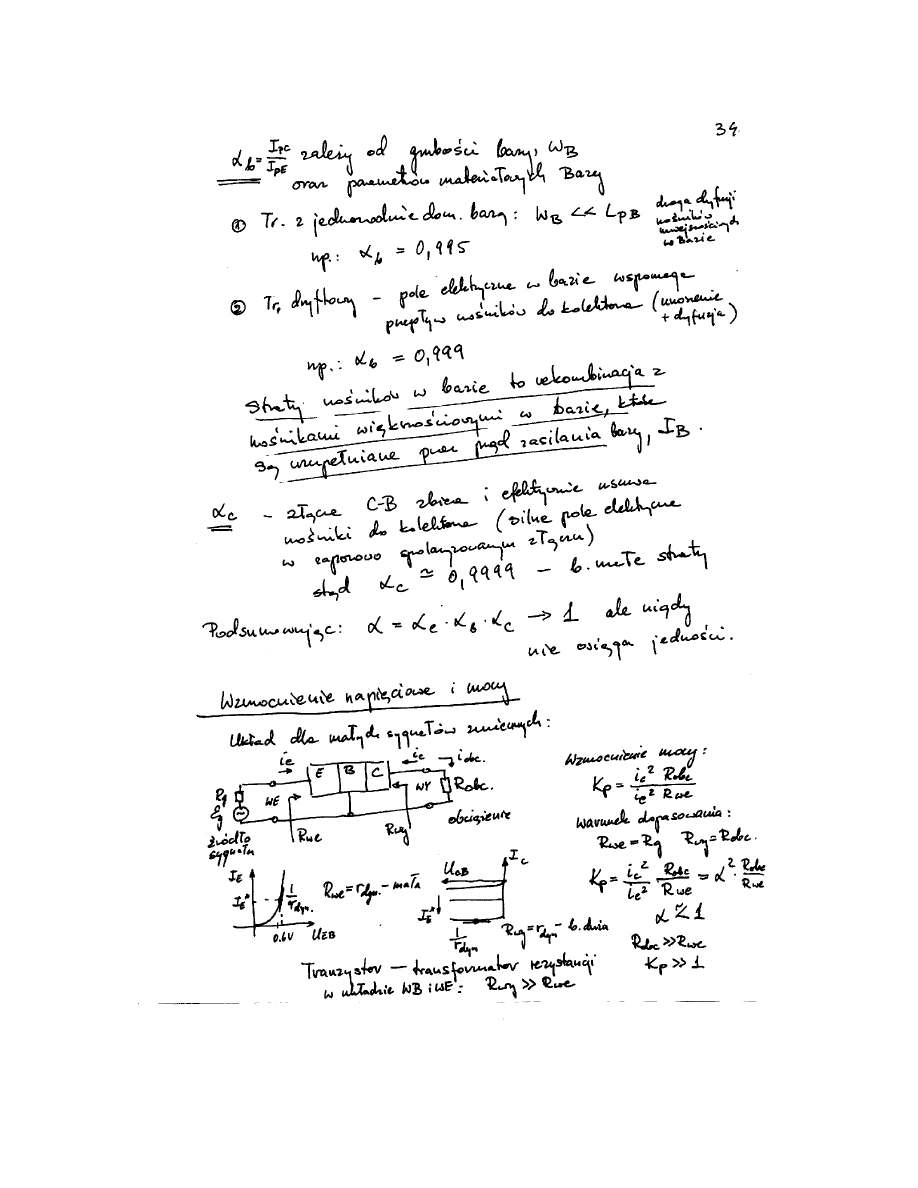 34
α_b = I_pC / I_pE zależy od grubości bazy, W_B
oraz parametrów materiałowych Bazy
① Tr. z jednorodnie dom. bazą : W_B << L_pB droga dyfuzji
nośników
mniejszościowych
w Bazie
np.: α_b = 0,995
② Tr. dryftowy – pole elektryczne w bazie wspomaga
przepływ nośników do kolektora (unoszenie
+ dyfuzja)
np.: α_b = 0,999
Straty nośników w bazie to rekombinacja z
nośnikami większościowymi w bazie, które
są uzupełniane przez prąd zasilania bazy, I_B.
α_c – złącze C-B zbiera i efektywnie usuwa
nośniki do kolektora (silne pole elektryczne
w zaporowo spolaryzowanym złączu)
stąd α_c ≃ 0,9999 – b. małe straty
Podsumowując: α = α_e · α_b · α_c → 1 ale nigdy
nie osiąga jedności.
Wzmocnienie napięciowe i mocy
Układ dla małych sygnałów zmiennych:
i_e i_c i_obc.
E B C
R_g WE WY R_obc.
E_g
źródło
sygnału
R_we R_wy obciążenie
Wzmocnienie mocy:
K_p = i_c² R_obc / i_e² R_we
Warunek dopasowania:
R_we = R_g R_wy = R_obc.
K_p = i_c² / i_e² R_obc / R_we = α² · R_obc / R_we
α ≈ 1
R_obc >> R_we
K_p >> 1
I_E
I_E* 1 / r_dyn. R_we = r_dyn. – mała
0.6V U_EB
U_CB I_C
I_E* 
1 / r_dyn R_wy = r_dyn – b. duża
Tranzystor — transformator rezystancji
w układzie WB i WE: R_wy >> R_we